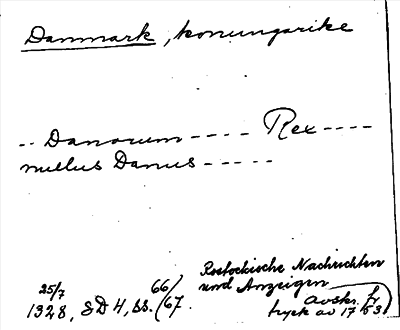 Danmark, konungarike
-- Danorum ---- Rex ----
nullus Danus -----
25/7 1328, SD 4, ss. 66/67.
Rostockische Nachrichten
und Anzeigen
avskr. fr.
tryck av 1753